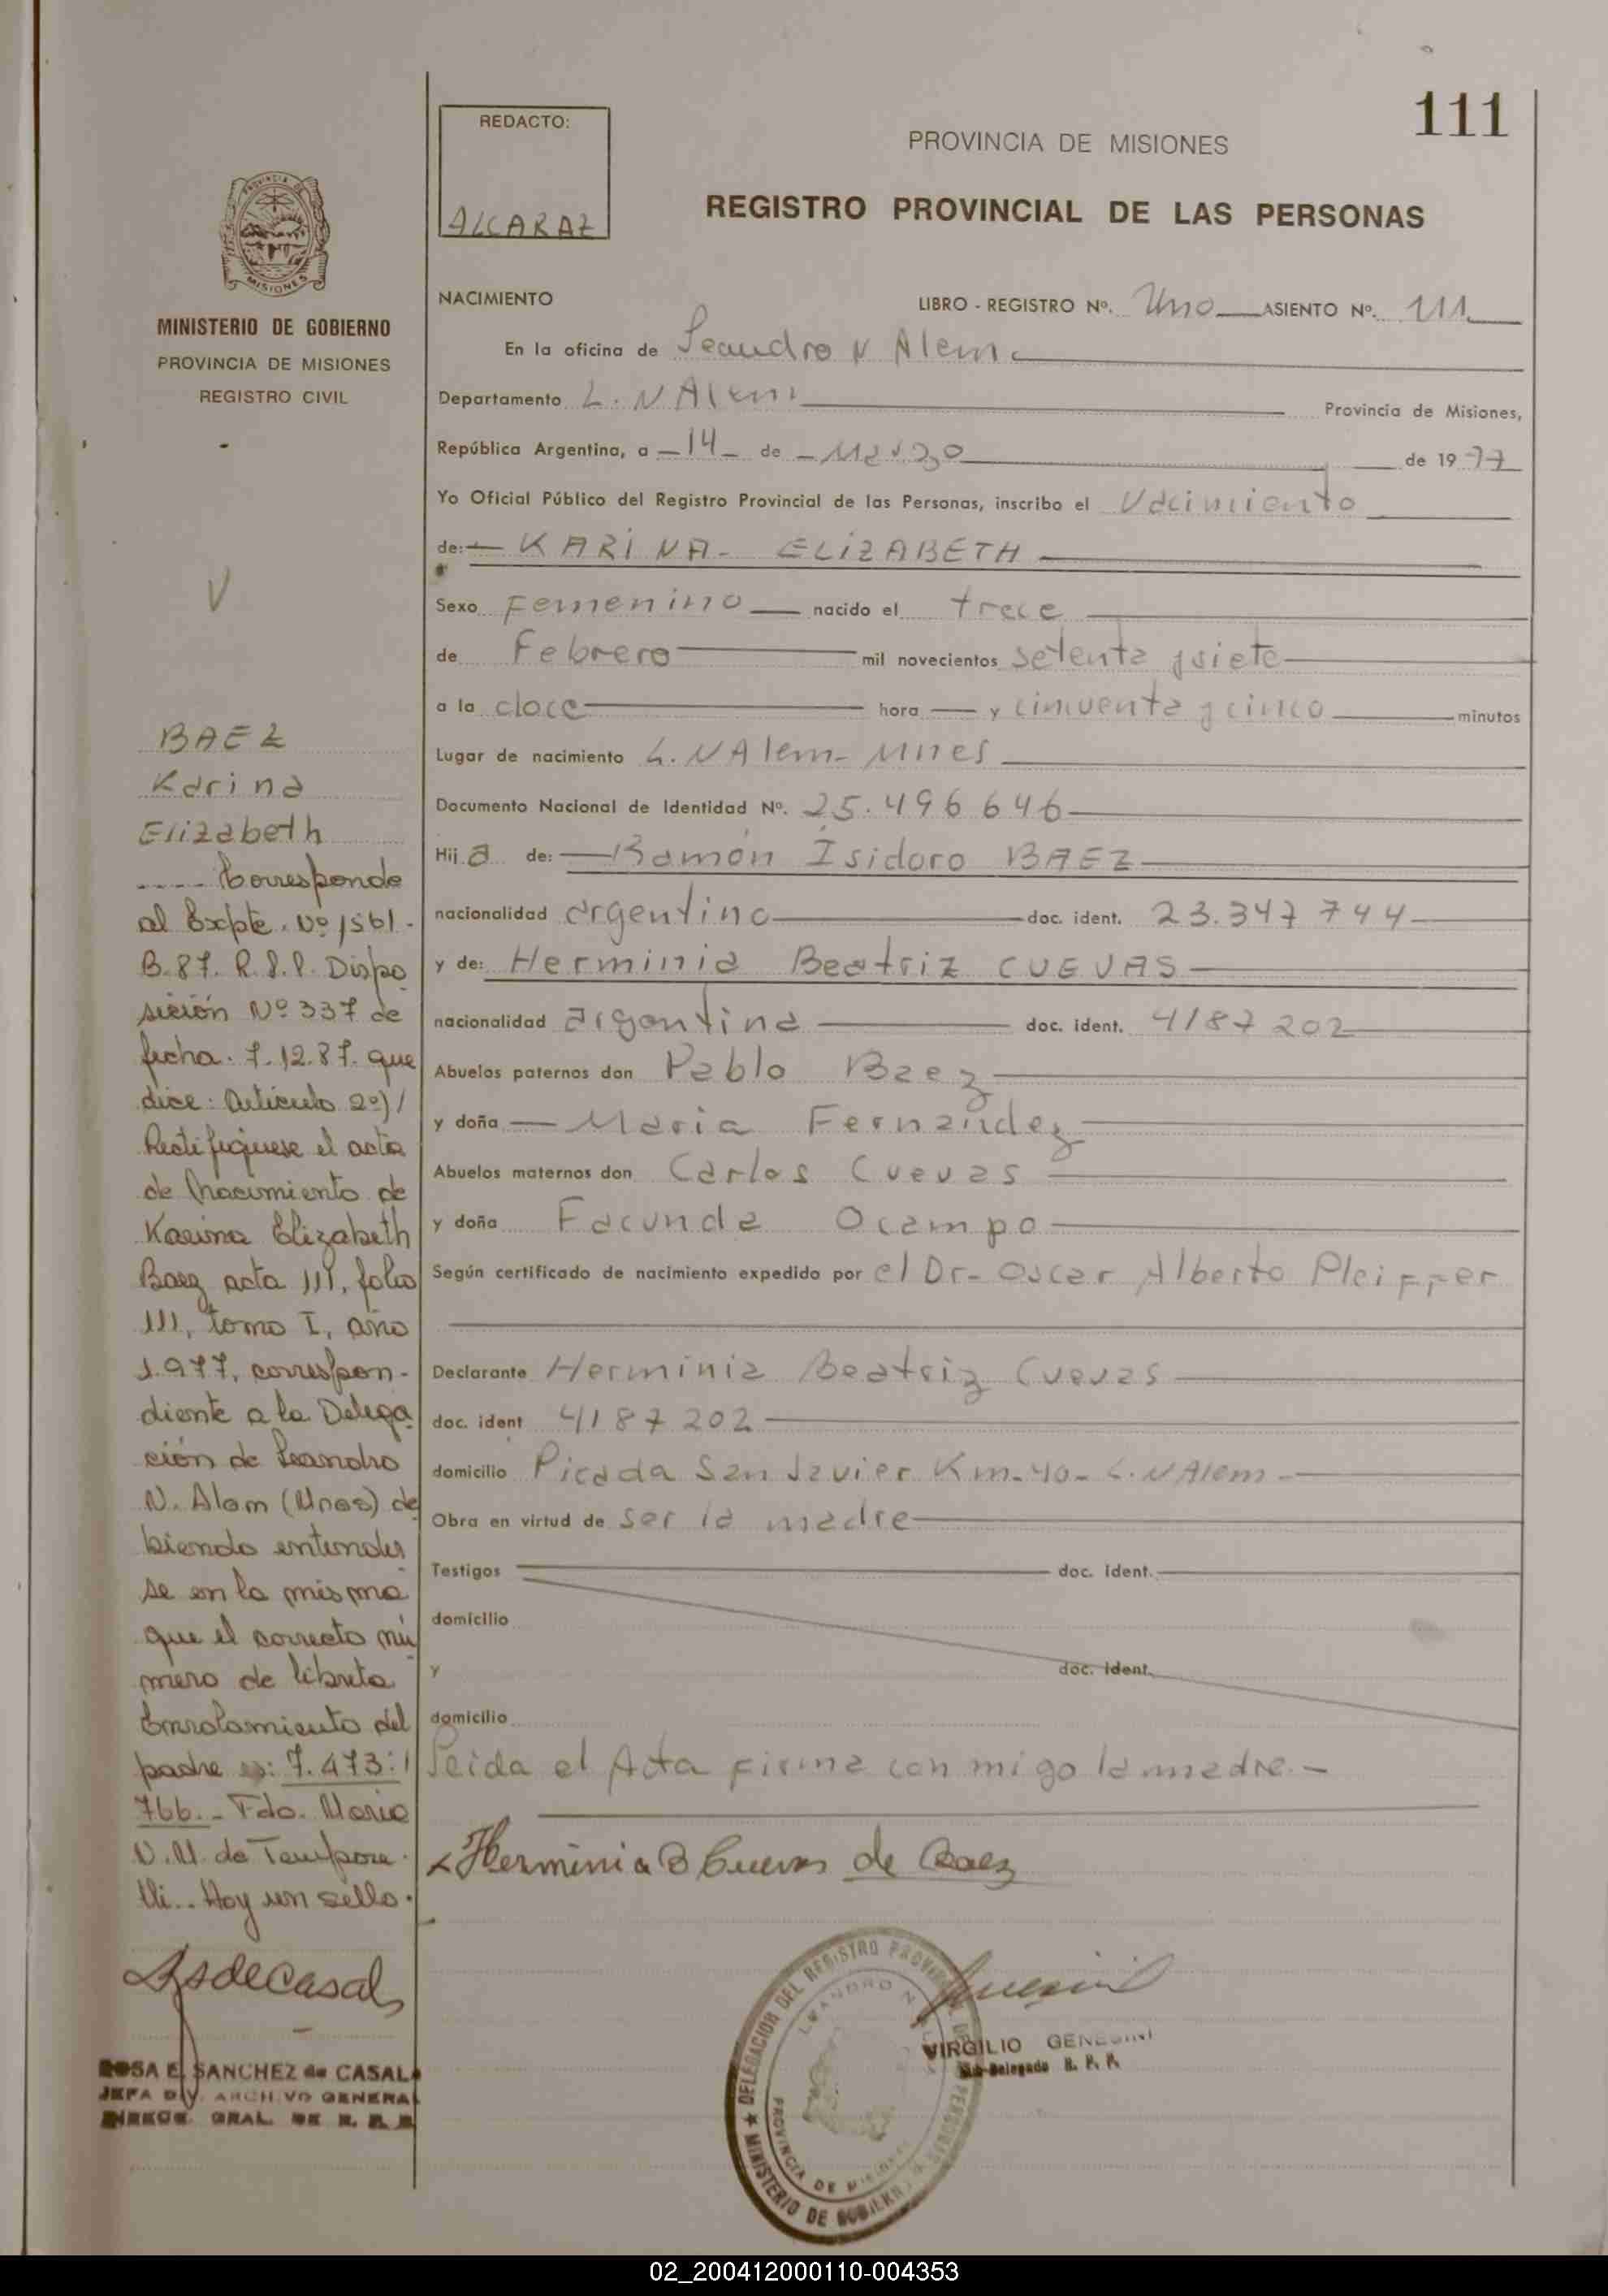 111
REDACTO:
ALCARAZ
PROVINCIA DE MISIONES
REGISTRO PROVINCIAL DE LAS PERSONAS
PROVINCIA DE
MISIONES
MINISTERIO DE GOBIERNO
PROVINCIA DE MISIONES
REGISTRO CIVIL
V
BAEZ
Karina
Elizabeth
---- Corresponde
al Expte. Nº 1561-
B-87. R.P.P. Dispo
sición Nº 337 de
fecha. 7.12.87. que
dice: Artículo 2º)/
Rectifíquese el acta
de Nacimiento de
Karina Elizabeth
Baez acta 111, folio
111, tomo I, año
1.977, correspon-
diente a la Delega
ción de Leandro
N. Alem (Mnes) de
biendo entender
se en la misma
que el correcto nú
mero de libreta
Enrolamiento del
padre es: 7.473:1
766.- Fdo. Maria
N.M. de Tempore
lli.. Hay un sello.
RsdeCasal
ROSA E. SANCHEZ de CASAL
JEFA DIV. ARCHIVO GENERAL
DIRECC. GRAL. DE R. P. P.
NACIMIENTO LIBRO - REGISTRO Nº. Uno ASIENTO Nº. 111
En la oficina de Leandro N Alem
Departamento L. N Alem Provincia de Misiones,
República Argentina, a -14- de - Marzo de 1977
Yo Oficial Público del Registro Provincial de las Personas, inscribo el Nacimiento
de: - KARINA - ELIZABETH
Sexo Femenino nacido el trece
de Febrero mil novecientos setenta y siete
a la doce hora y cincuenta y cinco minutos
Lugar de nacimiento L. N Alem - Mnes
Documento Nacional de Identidad Nº. 25.496 646
Hija de: Ramón Isidoro BAEZ
nacionalidad argentino doc. ident. 23.347 744
y de: Herminia Beatriz CUEVAS
nacionalidad argentina doc. ident. 4187 202
Abuelos paternos don Pablo Baez
y doña Maria Fernández
Abuelos maternos don Carlos Cuevas
y doña Facunda Ocampo
Según certificado de nacimiento expedido por el Dr- Oscar Alberto Pleiffer
Declarante Herminia Beatriz Cuevas
doc. ident 4187 202
domicilio Picada San Javier Km-40- L. N Alem -
Obra en virtud de ser la madre
Testigos doc. ident.
domicilio
y doc. ident.
domicilio
Leida el Acta firma con migo la madre.-
Herminia B Cuevas de Baez
★ DELEGACION DEL REGISTRO PROVINCIAL DE LAS PERSONAS
★ MINISTERIO DE GOBIERNO
LEANDRO N. ALEM
PROVINCIA DE MISIONES
VIRGILIO GENESINI
Sub-Delegado R. P. P.
02_200412000110-004353